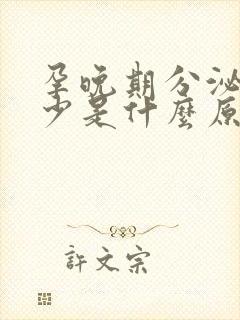 孕晚期分泌
少是什麼原
許文宗